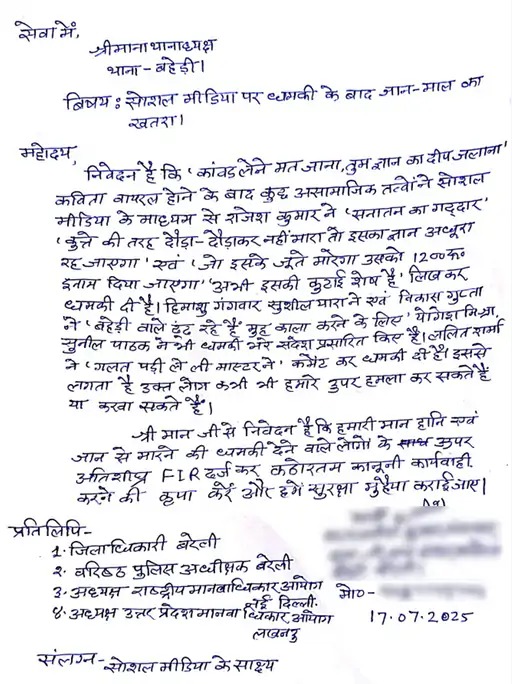 सेवा में,
श्रीमान थानाध्यक्ष
थाना - बहेड़ी।
विषय : सोशल मीडिया पर धमकी के बाद जान-माल का
खतरा।
महोदय,
निवेदन है कि 'कांवड़ लेने मत जाना, तुम ज्ञान का दीप जलाना'
कविता वायरल होने के बाद कुछ असामाजिक तत्वों ने सोशल
मीडिया के माध्यम से राजेश कुमार ने 'सनातन का गद्दार'
'कुत्ते की तरह दौड़ा-दौड़ाकर नहीं मारा तो इसका ज्ञान अधूरा
रह जाएगा' एवं 'जो इसके जूते मारेगा उसको 1200रू०
इनाम दिया जाएगा' 'अभी इसकी कुटाई शेष है' लिखकर
धमकी दी है। हिमांशु गंगवार सुशील ने एवं विकास गुप्ता
ने 'बहेड़ी वाले ढूंढ रहे हैं मुह काला करने के लिए' योगेश मिश्रा,
सुनील पाठक ने भी धमकी भरे संदेश प्रसारित किए हैं। ललित शर्मा
ने 'गलत पड़ी ले ली मास्टर ने' कमेंट कर धमकी दी है। इससे
लगता है उक्त लोग कभी भी हमारे उपर हमला कर सकते हैं
या करवा सकते हैं।
श्री मान जी से निवेदन है कि हमारी मान हानि एवं
जान से मारने की धमकी देने वाले लोगों के ऊपर
अतिशीघ्र FIR दर्ज कर कठोरतम कानूनी कार्यवाही
करने की कृपा करें और हमें सुरक्षा मुहैया कराई जाए।
प्रतिलिपि-
1. जिलाधिकारी बरेली
2. वरिष्ठ पुलिस अधीक्षक बरेली
3. अध्यक्ष राष्ट्रीय मानवाधिकार आयोग
नई दिल्ली.
मो०-
4. अध्यक्ष उत्तर प्रदेश मानवाधिकार आयोग
लखनऊ
17.07.2025
संलग्न - सोशल मीडिया के साक्ष्य